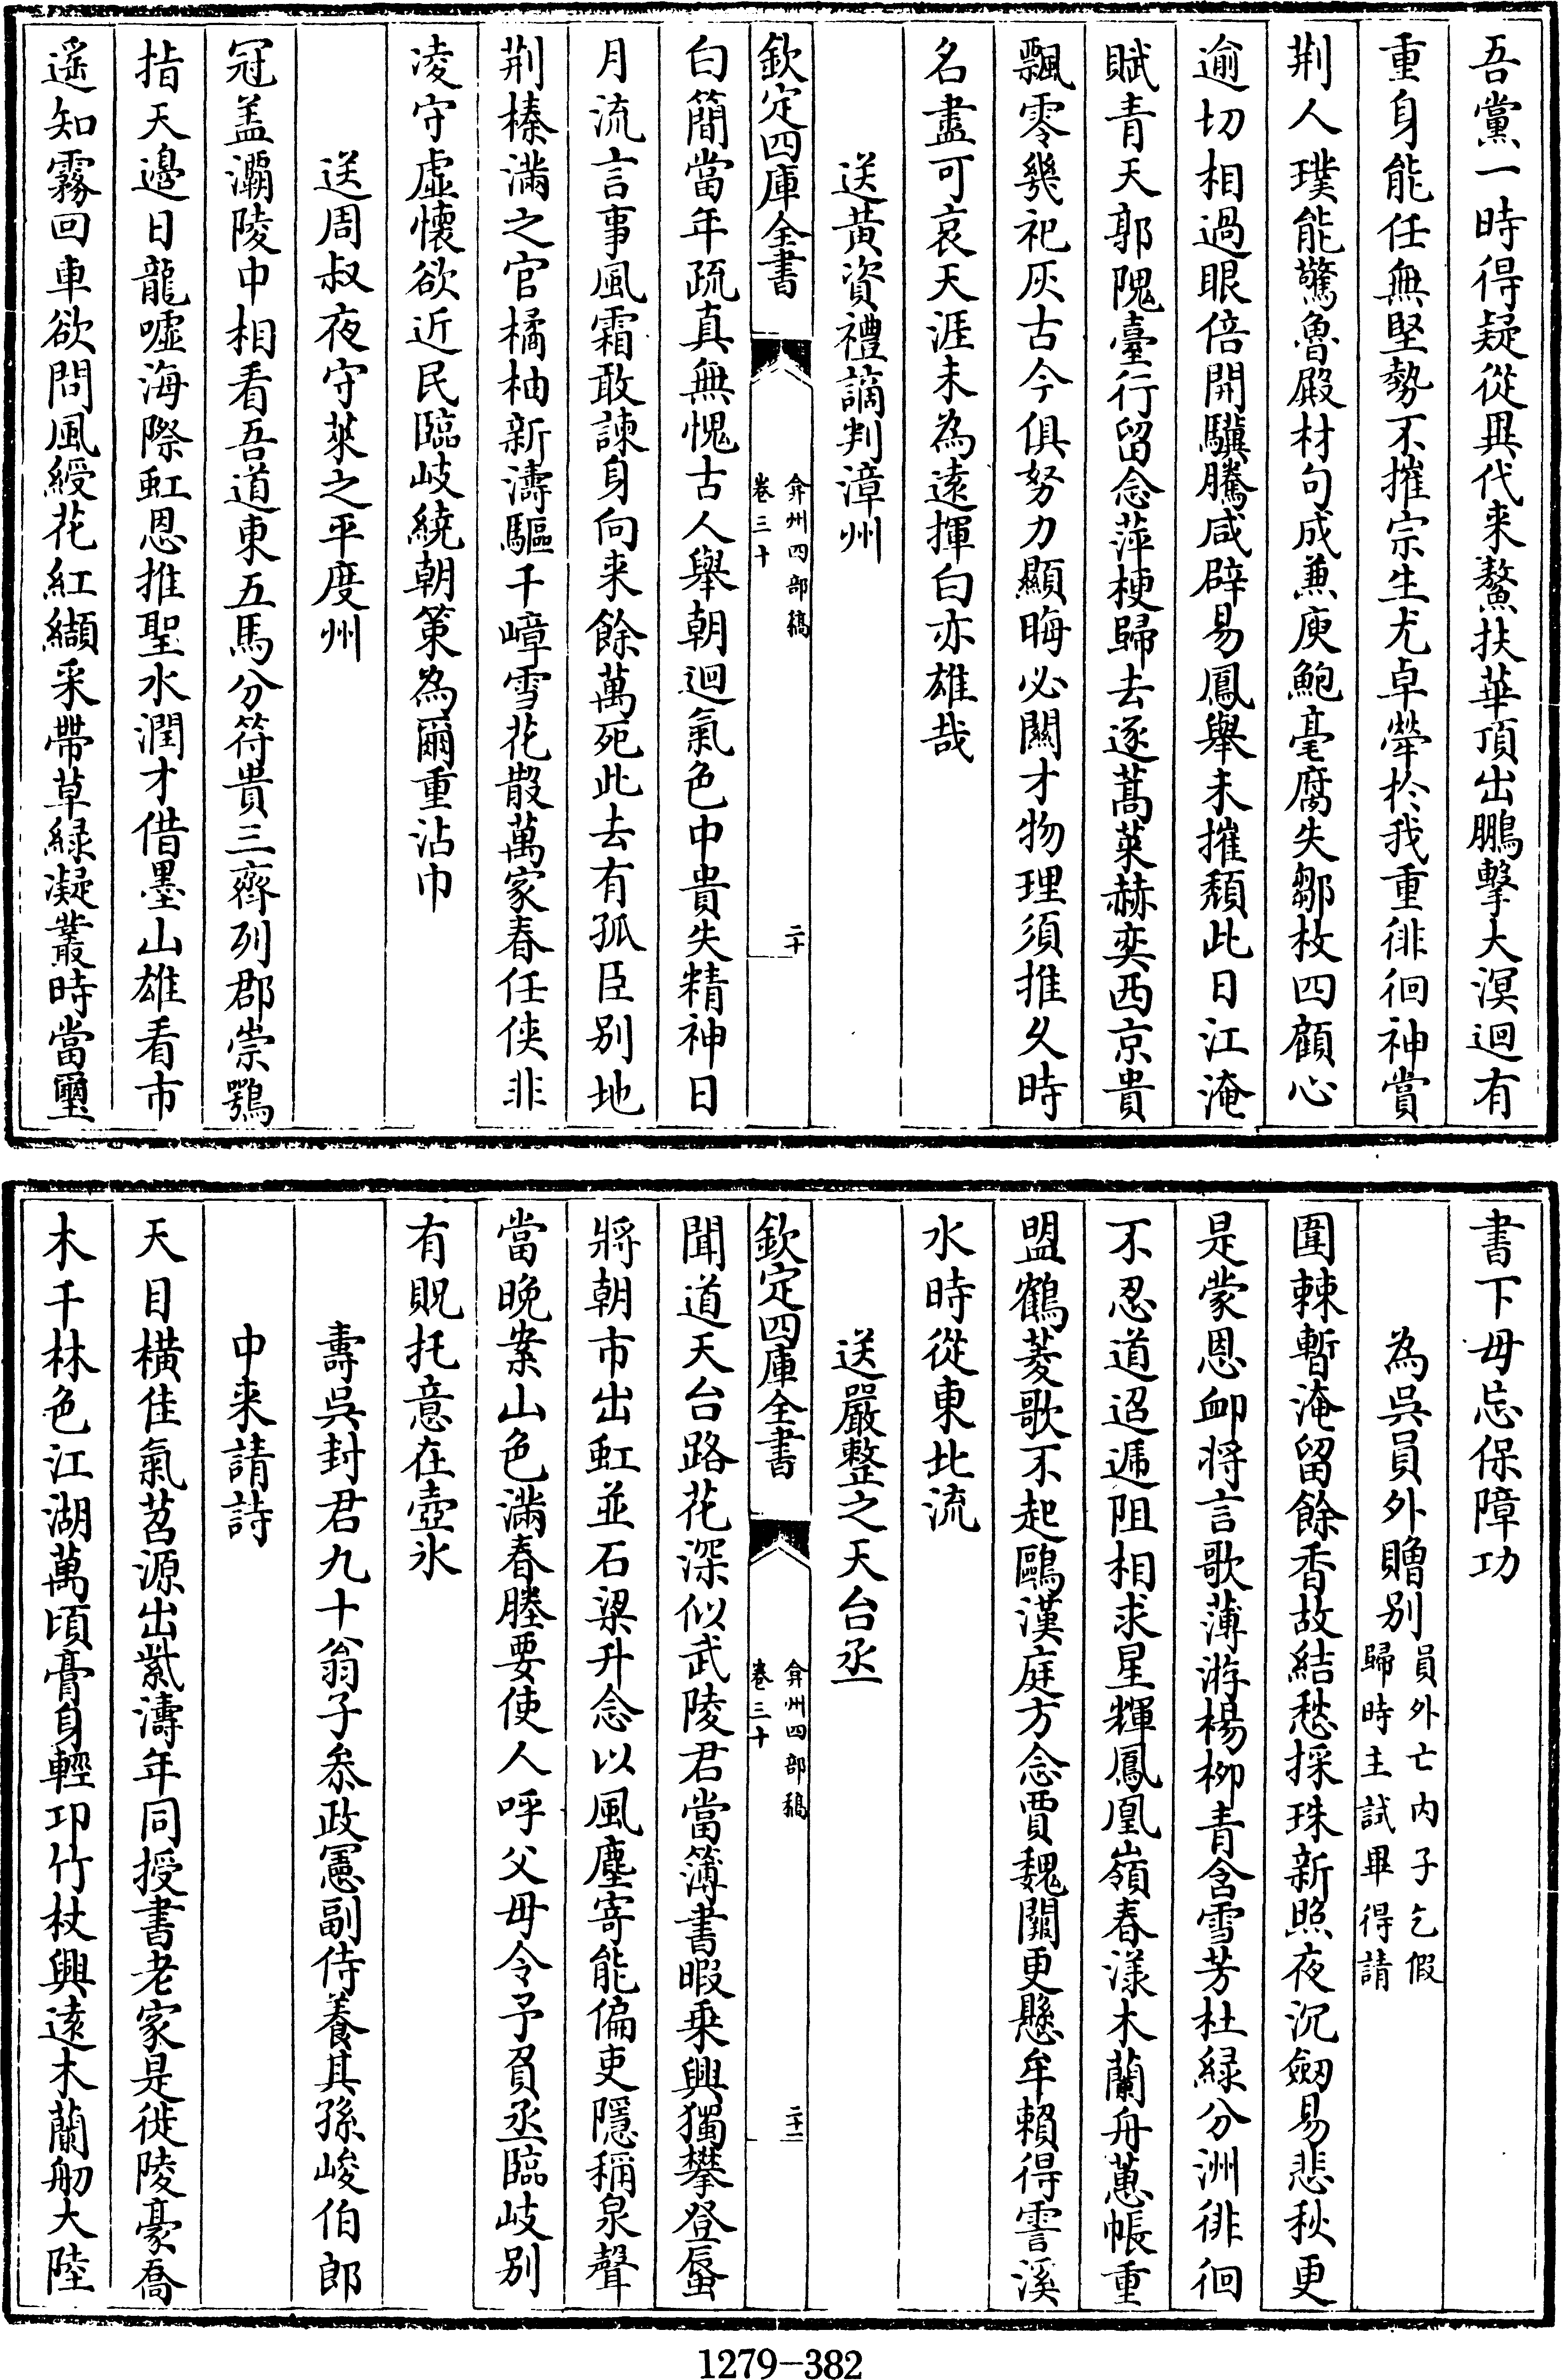 吾黨一時得疑從異代来鰲扶華頂出鵬擊大溟迴有
重身能任無堅勢不摧宗生尤卓犖於我重徘徊神賞
荆人璞能驚魯殿材句成兼庾鮑毫腐失鄒枚四顧心
逾切相過眼倍開驥騰咸辟易鳳舉未摧頹此日江淹
賦青天郭隗臺行留念萍梗歸去逐蒿萊赫奕西京貴
飄零幾祀灰古今俱努力顯晦必關才物理須推乆時
名盡可哀天涯未為遠揮白亦雄哉
送黄資禮謫判漳州
欽定四庫全書
弇州四部稿
卷三十
二十
白簡當年疏真無愧古人舉朝迴氣色中貴失精神日
月流言事風霜敢諫身向来餘萬死此去有孤臣别地
荆榛滿之官橘柚新濤驅千嶂雪花散萬家春任俠非
凌守虛懷欲近民臨岐繞朝策為爾重沾巾
送周叔夜守萊之平度州
冠盖灞陵中相看吾道東五馬分符貴三齊列郡崇鶚
指天邉日龍噓海際虹恩推聖水潤才借墨山雄看市
遥知霧回車欲問風綬花紅纈采帶草緑凝叢時當璽
書下毋忘保障功
為吳員外贈别
員外亡内子乞假
歸時主試畢得請
圍棘暫淹留餘香故結愁採珠新照夜沉劔易悲秋更
是蒙恩䘏将言歌薄游楊栁青含雪芳杜緑分洲徘徊
不忍道迢遞阻相求星輝鳳凰嶺春漾木蘭舟蕙帳重
盟鶴菱歌不起鷗漢庭方念賈魏闕更懸牟賴得霅溪
水時從東北流
送嚴整之天台丞
欽定四庫全書
弇州四部稿
卷三十
二十一
聞道天台路花深似武陵君當簿書暇乗興獨攀登蜃
將朝市出虹並石梁升念以風塵寄能偏吏隱稱泉聲
當晚案山色滿春塍要使人呼父毋令予負丞臨岐别
有貺托意在壺氷
夀吳封君九十翁子叅政憲副侍養其孫峻伯郎
中来請詩
天目横佳氣苕源出紫濤年同授書老家是徙陵豪喬
木千林色江湖萬頃膏身輕卭竹杖興逺木蘭舠大陸
1279-382